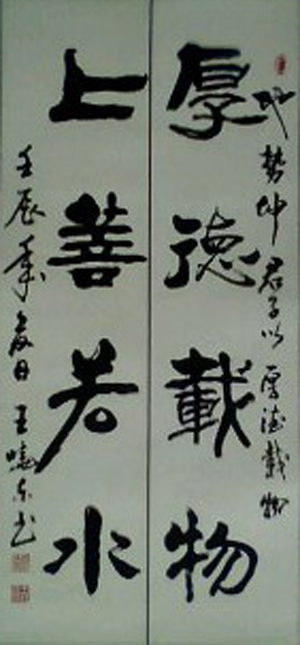 地勢坤君子以厚德載物
厚德載物
上善若水
壬辰年夏日王晓东书